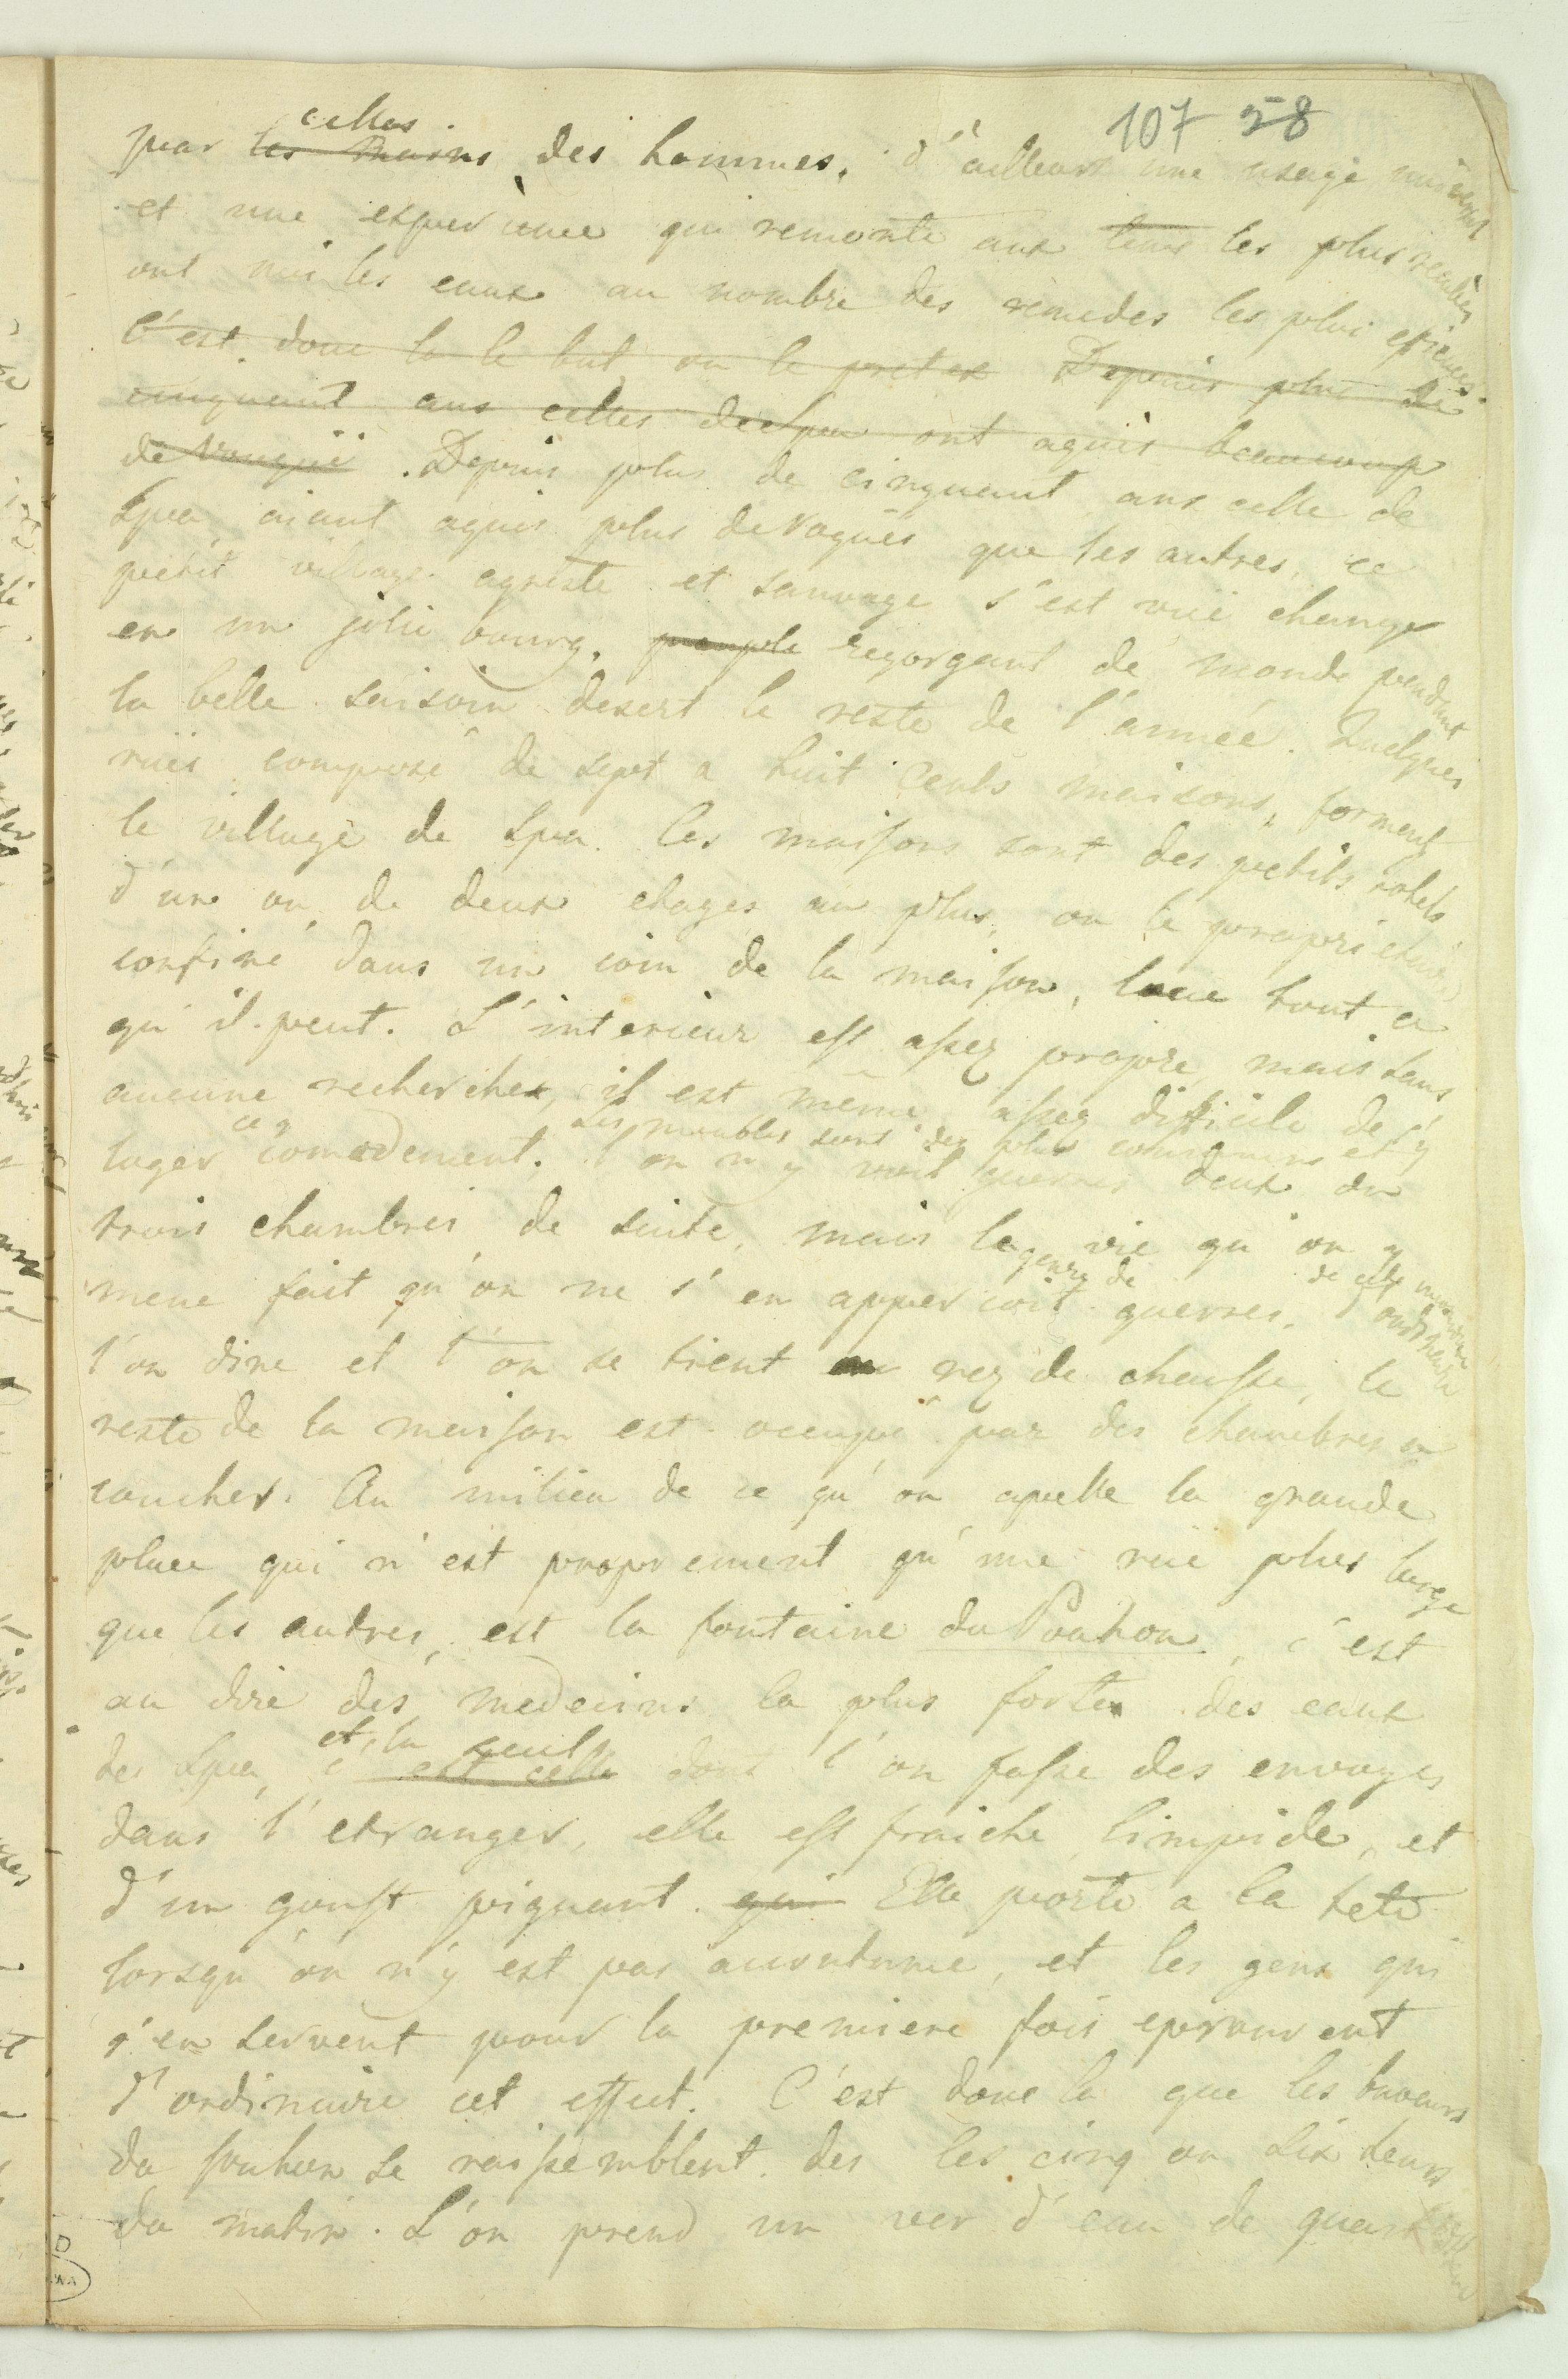 107 58
celles
par les mains des hommes. d'ailleurs une usage universel
et une experience qui remonte aux tems les plus reculés
ont mis les eaux au nombre des remedes les plus efficaces.
C'est donc la le but ou le pretex Depuis plus de
cinquant ans celles de Spa ont aquis beaucoup
de vouguë. Depuis plus de cinquant ans celle de
Spa, aiant aquis plus de voguës que les autres, ce
petit village agreste et sauvage s'est vuë changer
en un jolie bourg, peuple regorgant de monde pendant
la belle saisoin desert le reste de l'année. Quelques
ruës composé de sept a huit cents maisons, forment
le village de Spa. les maisons sont des petits hotels
d'un ou de deux etages au plus, ou le proprietaire
confiné dans un coin de la maison, loue tout ce
qu'il peut. L'interieur est assez propre, mais sans
aucune recherche, il est même assez difficile de s'y
Les meubles sont des plus comuns et
loger comodement. l'on n'y voit guerres deux ou
trois chambres de suite, mais le genre de vie qu'on y
mene fait qu'on ne s'en appercoit guerres. D'ordinaire
l'on dine et l'on se tient au rez de chausse, le
reste de la maison est occupé par des chambres a
coucher. Au milieu de ce qu'on apelle la grande
place qui n'est proprement qu'une ruë plus large
que les autres, est la fontaine du Pouhon, c'est
au dire des medecins la plus forte des eaux
et la seul
de Spa, c'est celle dont l'on fasse des envoyes
dans l'etranger, elle est fraiche, limpide, et
d'un goust piquant. qui Elle porte a la tete
lorsqu'on n'y est pas acoutume, et les gens qui
s'en servent pour la premiere fois eprouvent
d'ordinaire cet effect. C'est donc la que les buveurs
du pouhon se raissemblent des les cinq ou six heurs
du matin. L'on prend un ver d'eau de quart